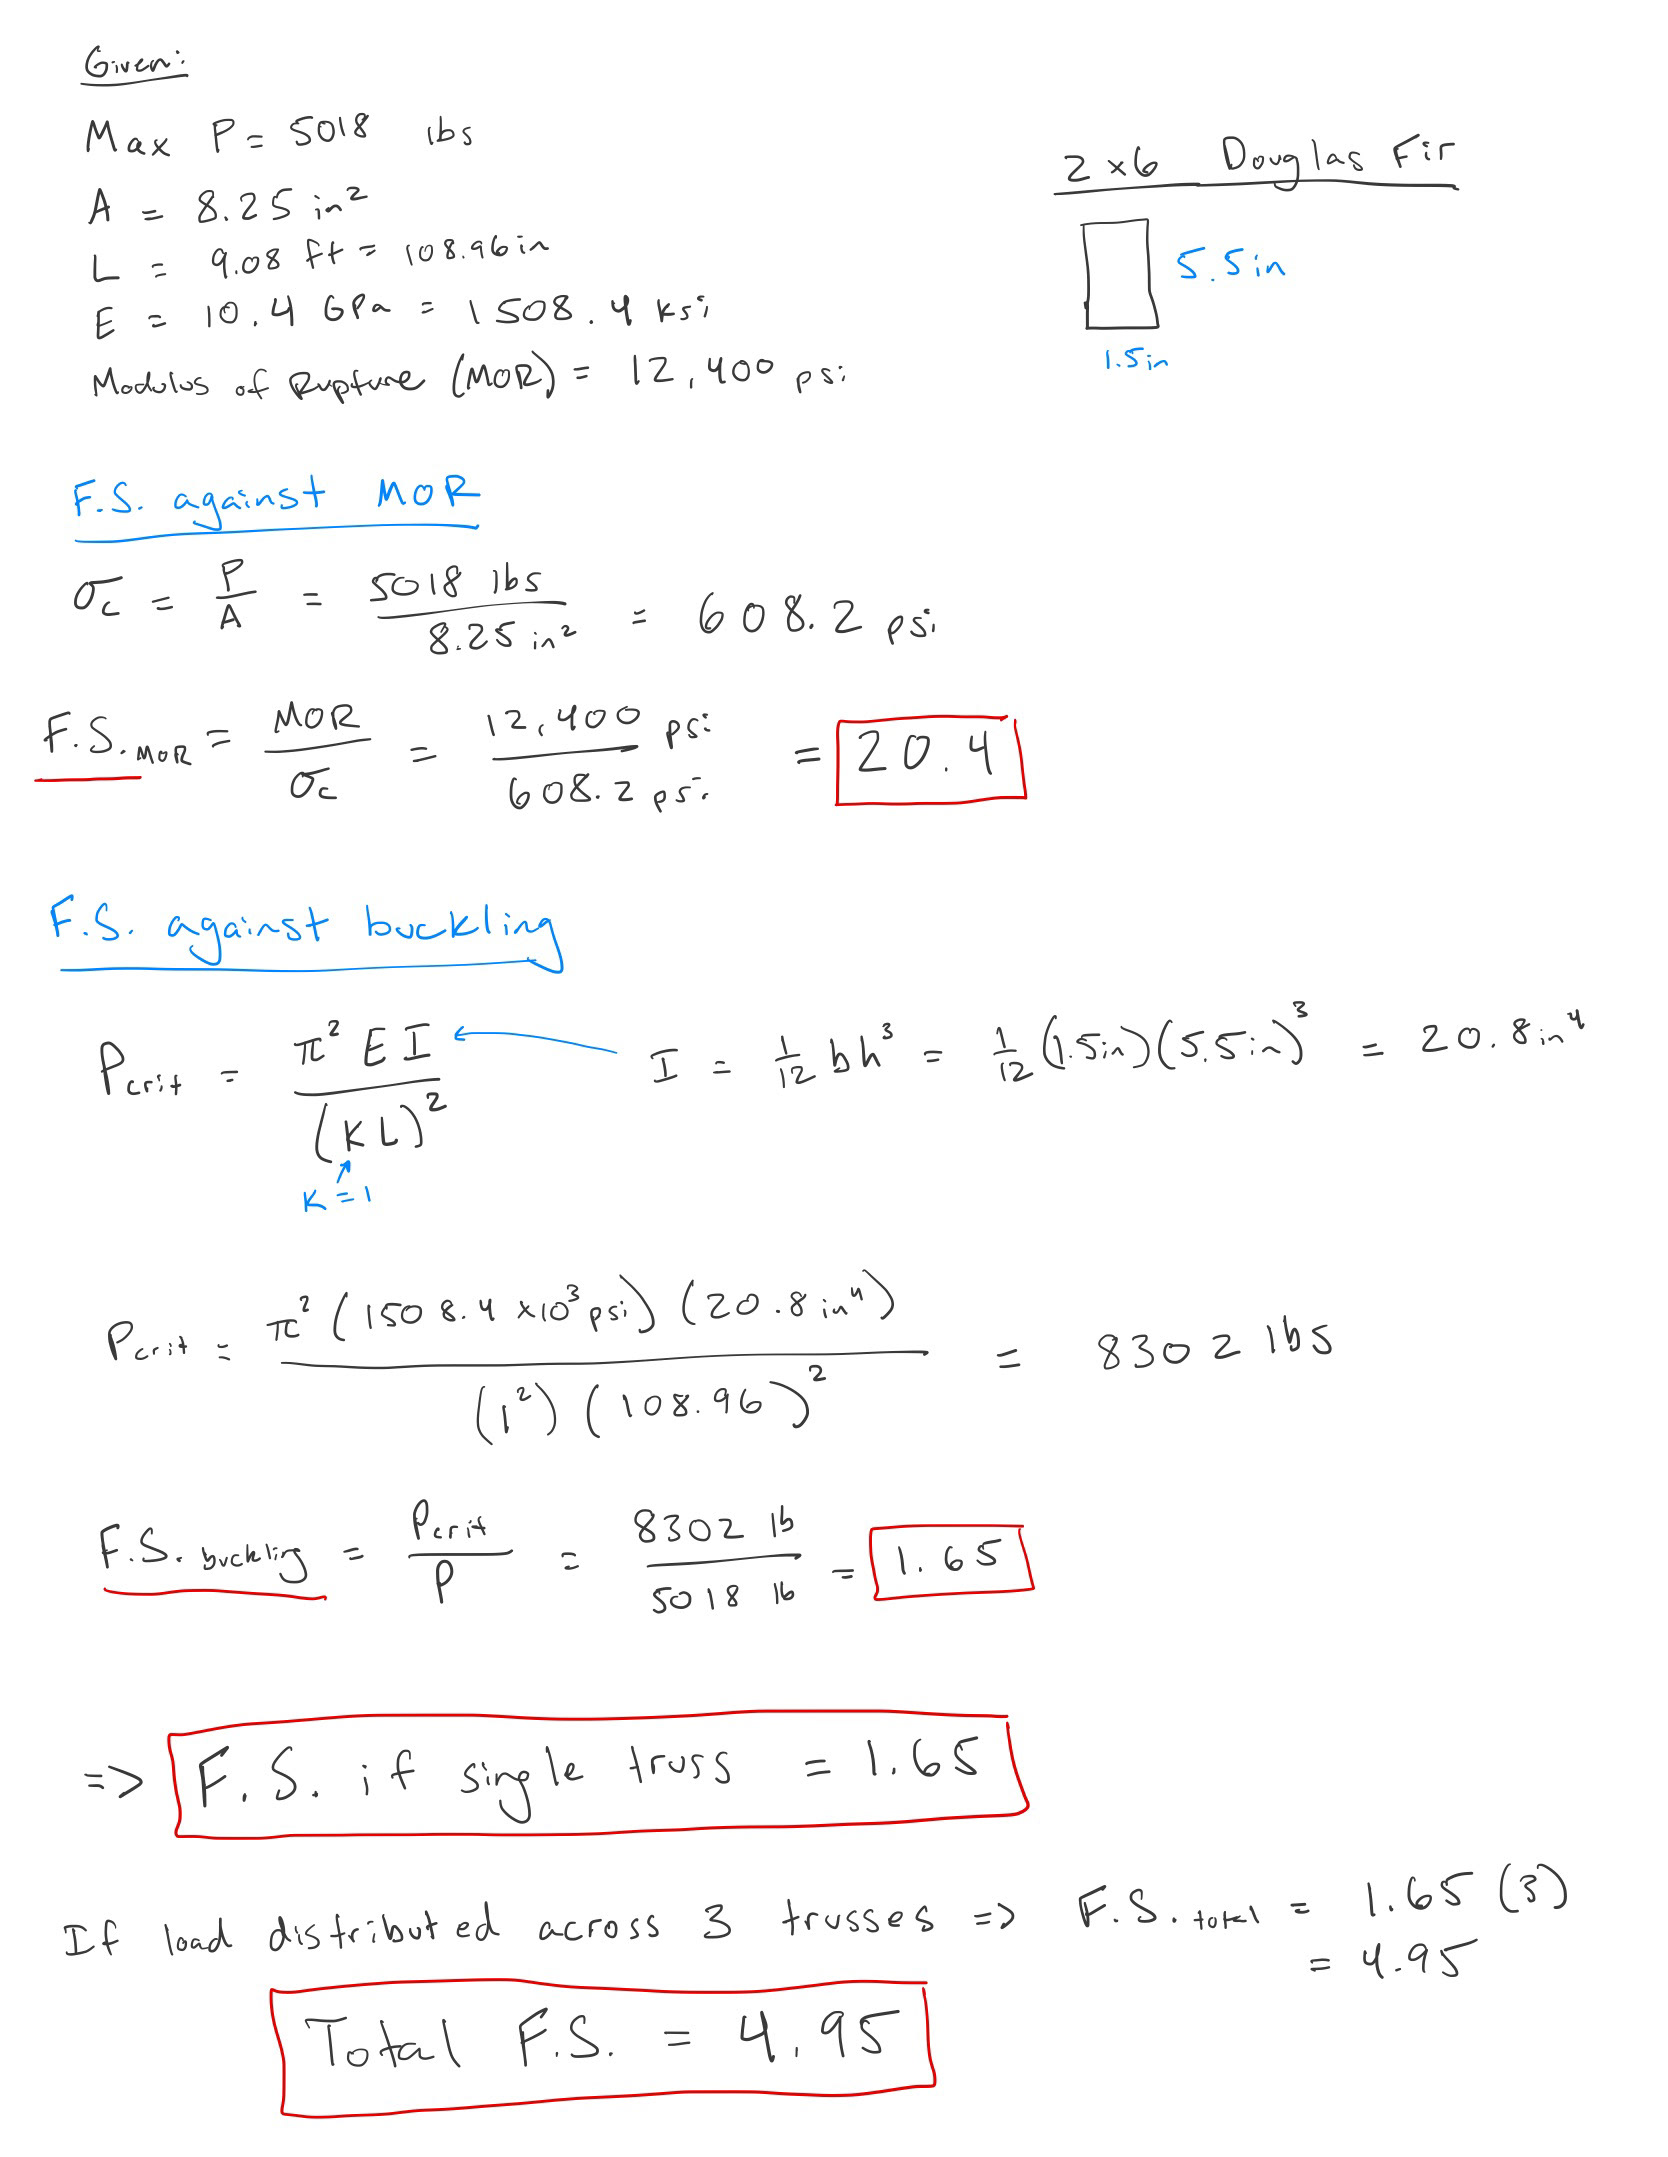 Given:
Max P = 5018 lbs
2x6 Douglas Fir
A = 8.25 in²
5.5in
L = 9.08 ft = 108.96in
E = 10.4 GPa = 1508.4 ksi
1.5in
Modulus of Rupture (MOR) = 12,400 psi
F.S. against MOR
σc = P/A = 5018 lbs / 8.25 in² = 608.2 psi
F.S. MOR = MOR/σc = 12,400 psi / 608.2 psi = 20.4
F.S. against buckling
Pcrit = π² E I / (KL)²
I = 1/12 bh³ = 1/12 (1.5in)(5.5in)³ = 20.8in⁴
K = 1
Pcrit = π² (1508.4 x10³ psi) (20.8 in⁴) / (1²) (108.96)² = 8302 lbs
F.S. buckling = Pcrit / P = 8302 lb / 5018 lb = 1.65
=> F.S. if single truss = 1.65
If load distributed across 3 trusses => F.S. total = 1.65 (3)
= 4.95
Total F.S. = 4.95